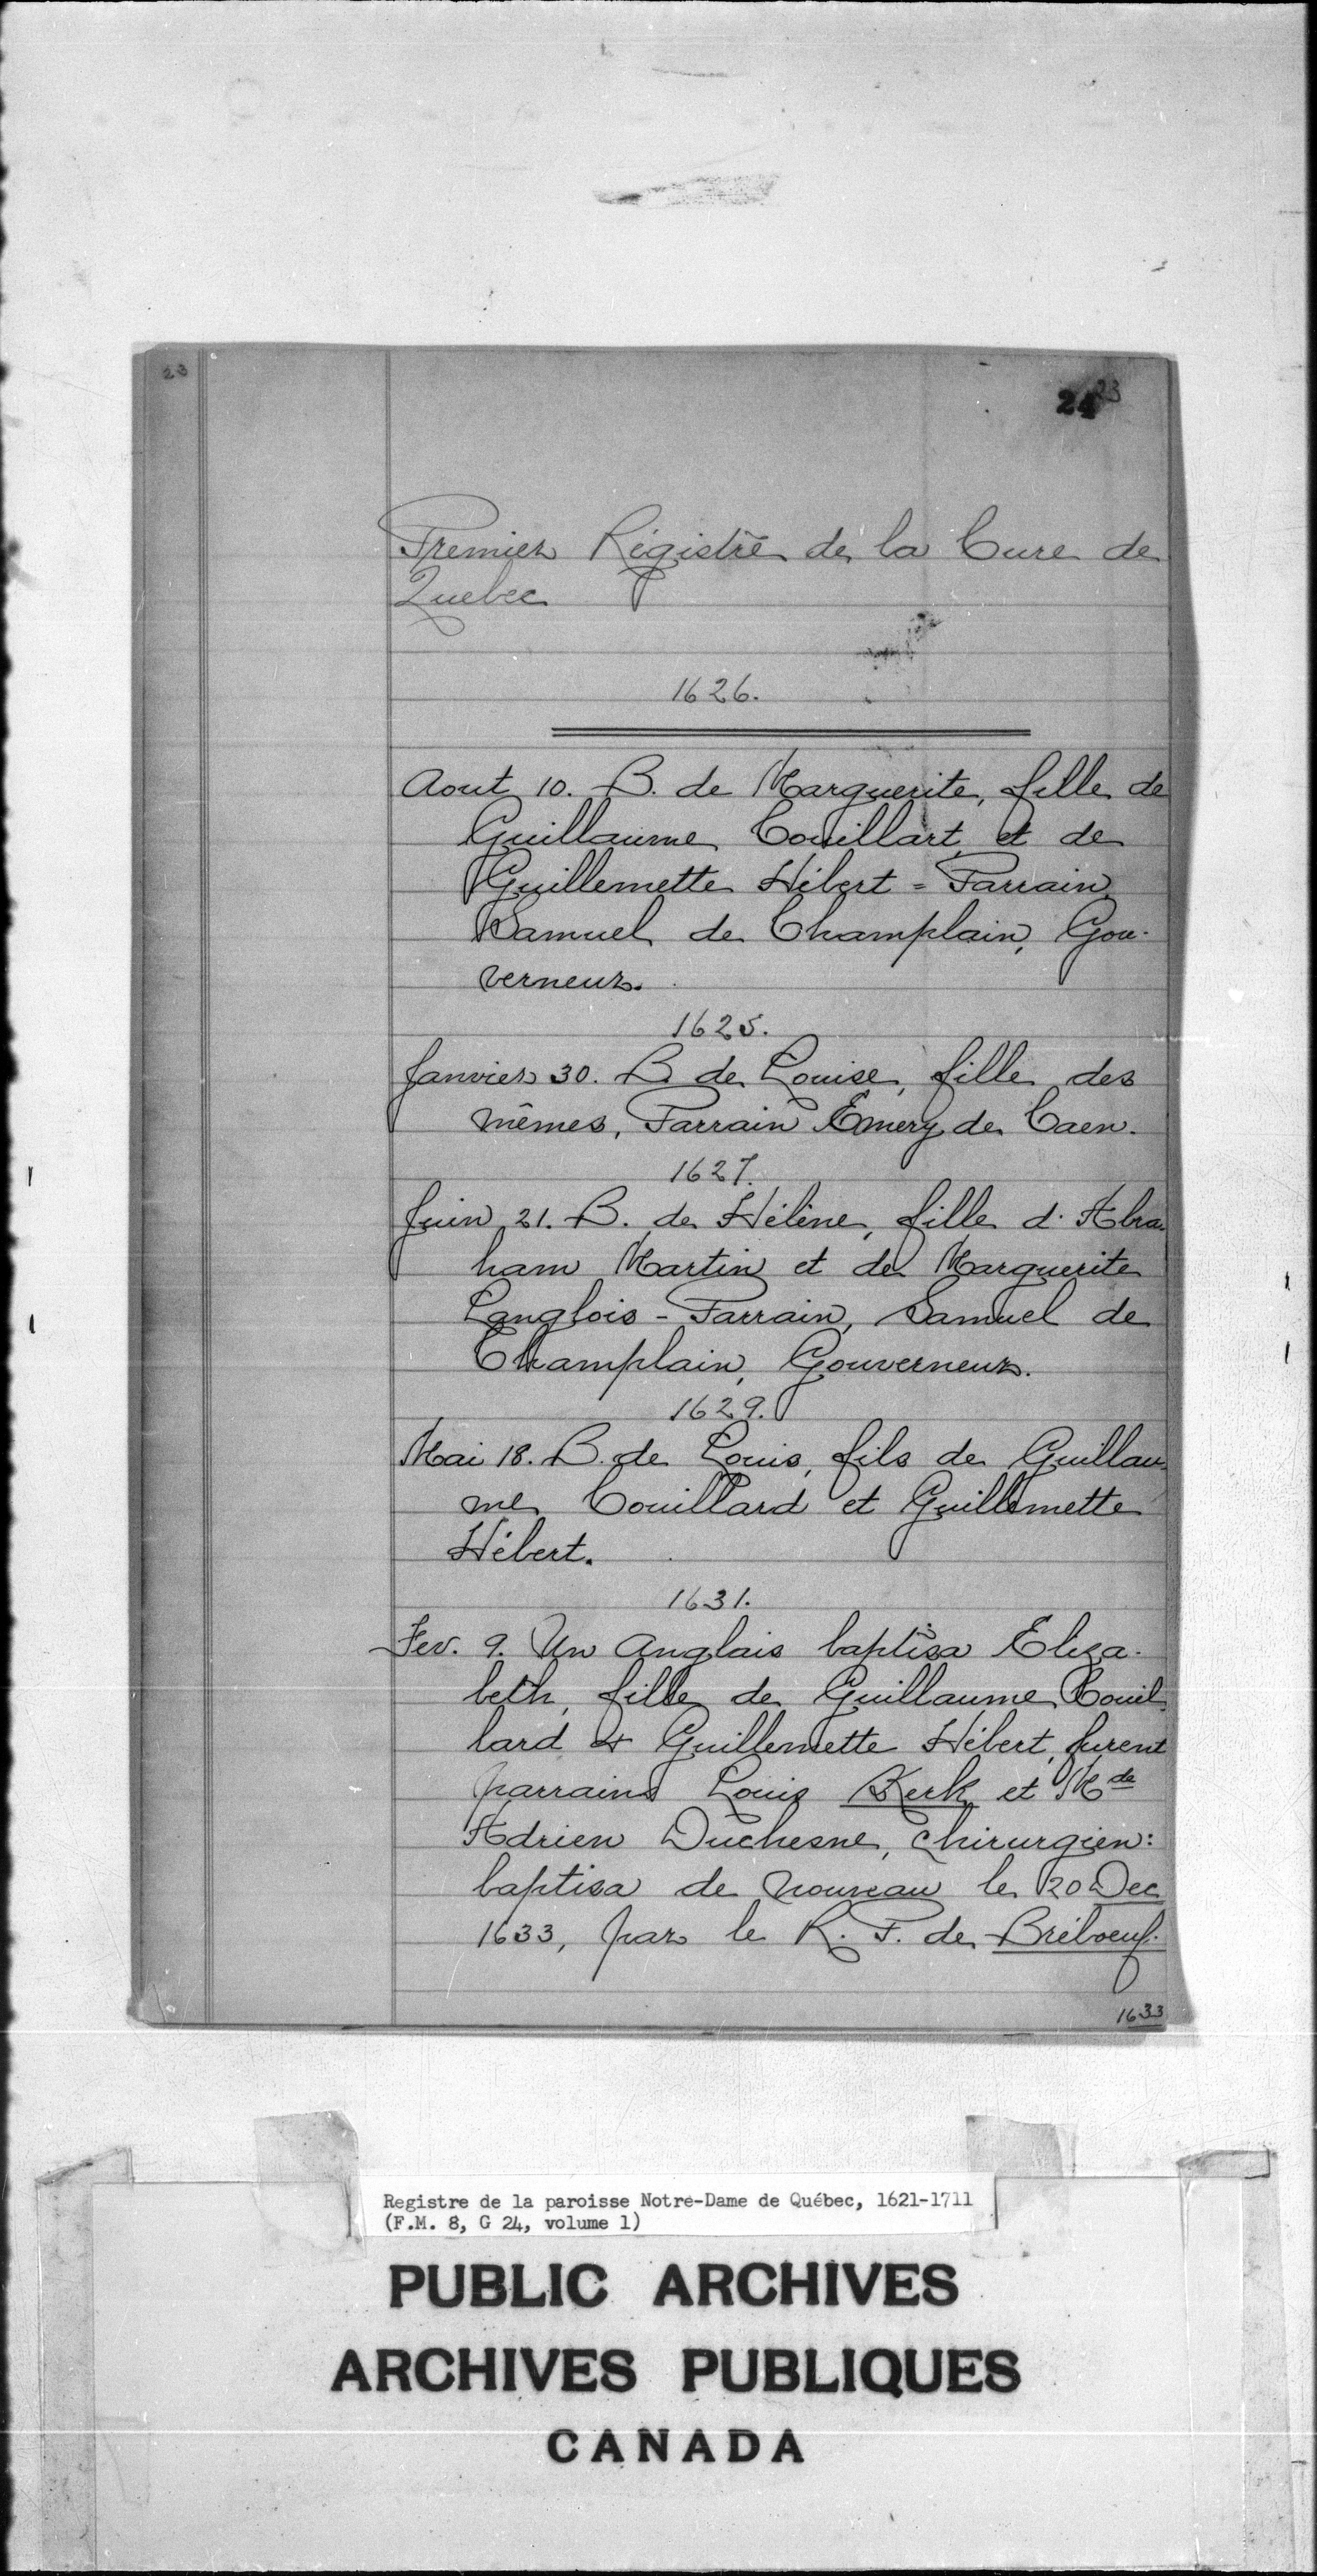 23
24 23
Premier Régistre de la Cure de
Quebec
1626.
Aout 10. B. de Marguerite, fille de
Guillaume Couillart et de
Guillemette Hébert = Parrain,
Samuel de Champlain, Gou-
verneur.
1625.
Janvier 30. B. de Louise, fille des
mêmes, Parrain Emery de Caen.
1627.
Juin 21. B. de Hélène, fille d'Abra-
ham Martin et de Marguerite
Langlois - Parrain, Samuel de
Champlain, Gouverneur.
1629.
Mai 18. B. de Louis, fils de Guillau-
me Couillard et Guillemette
Hébert.
1631.
Fev. 9. Un anglais baptisa Eliza-
beth, fille de Guillaume Couil-
lard & Guillemette Hébert, furent
parrains Louis Kerk et Mde
Adrien Duchesne, chirurgien:
baptisa de nouveau le 20 Dec
1633, par le R. P. de Bréboeuf.
1633
Registre de la paroisse Notre-Dame de Québec, 1621-1711
(F.M. 8, G 24, volume 1)
PUBLIC ARCHIVES
ARCHIVES PUBLIQUES
CANADA